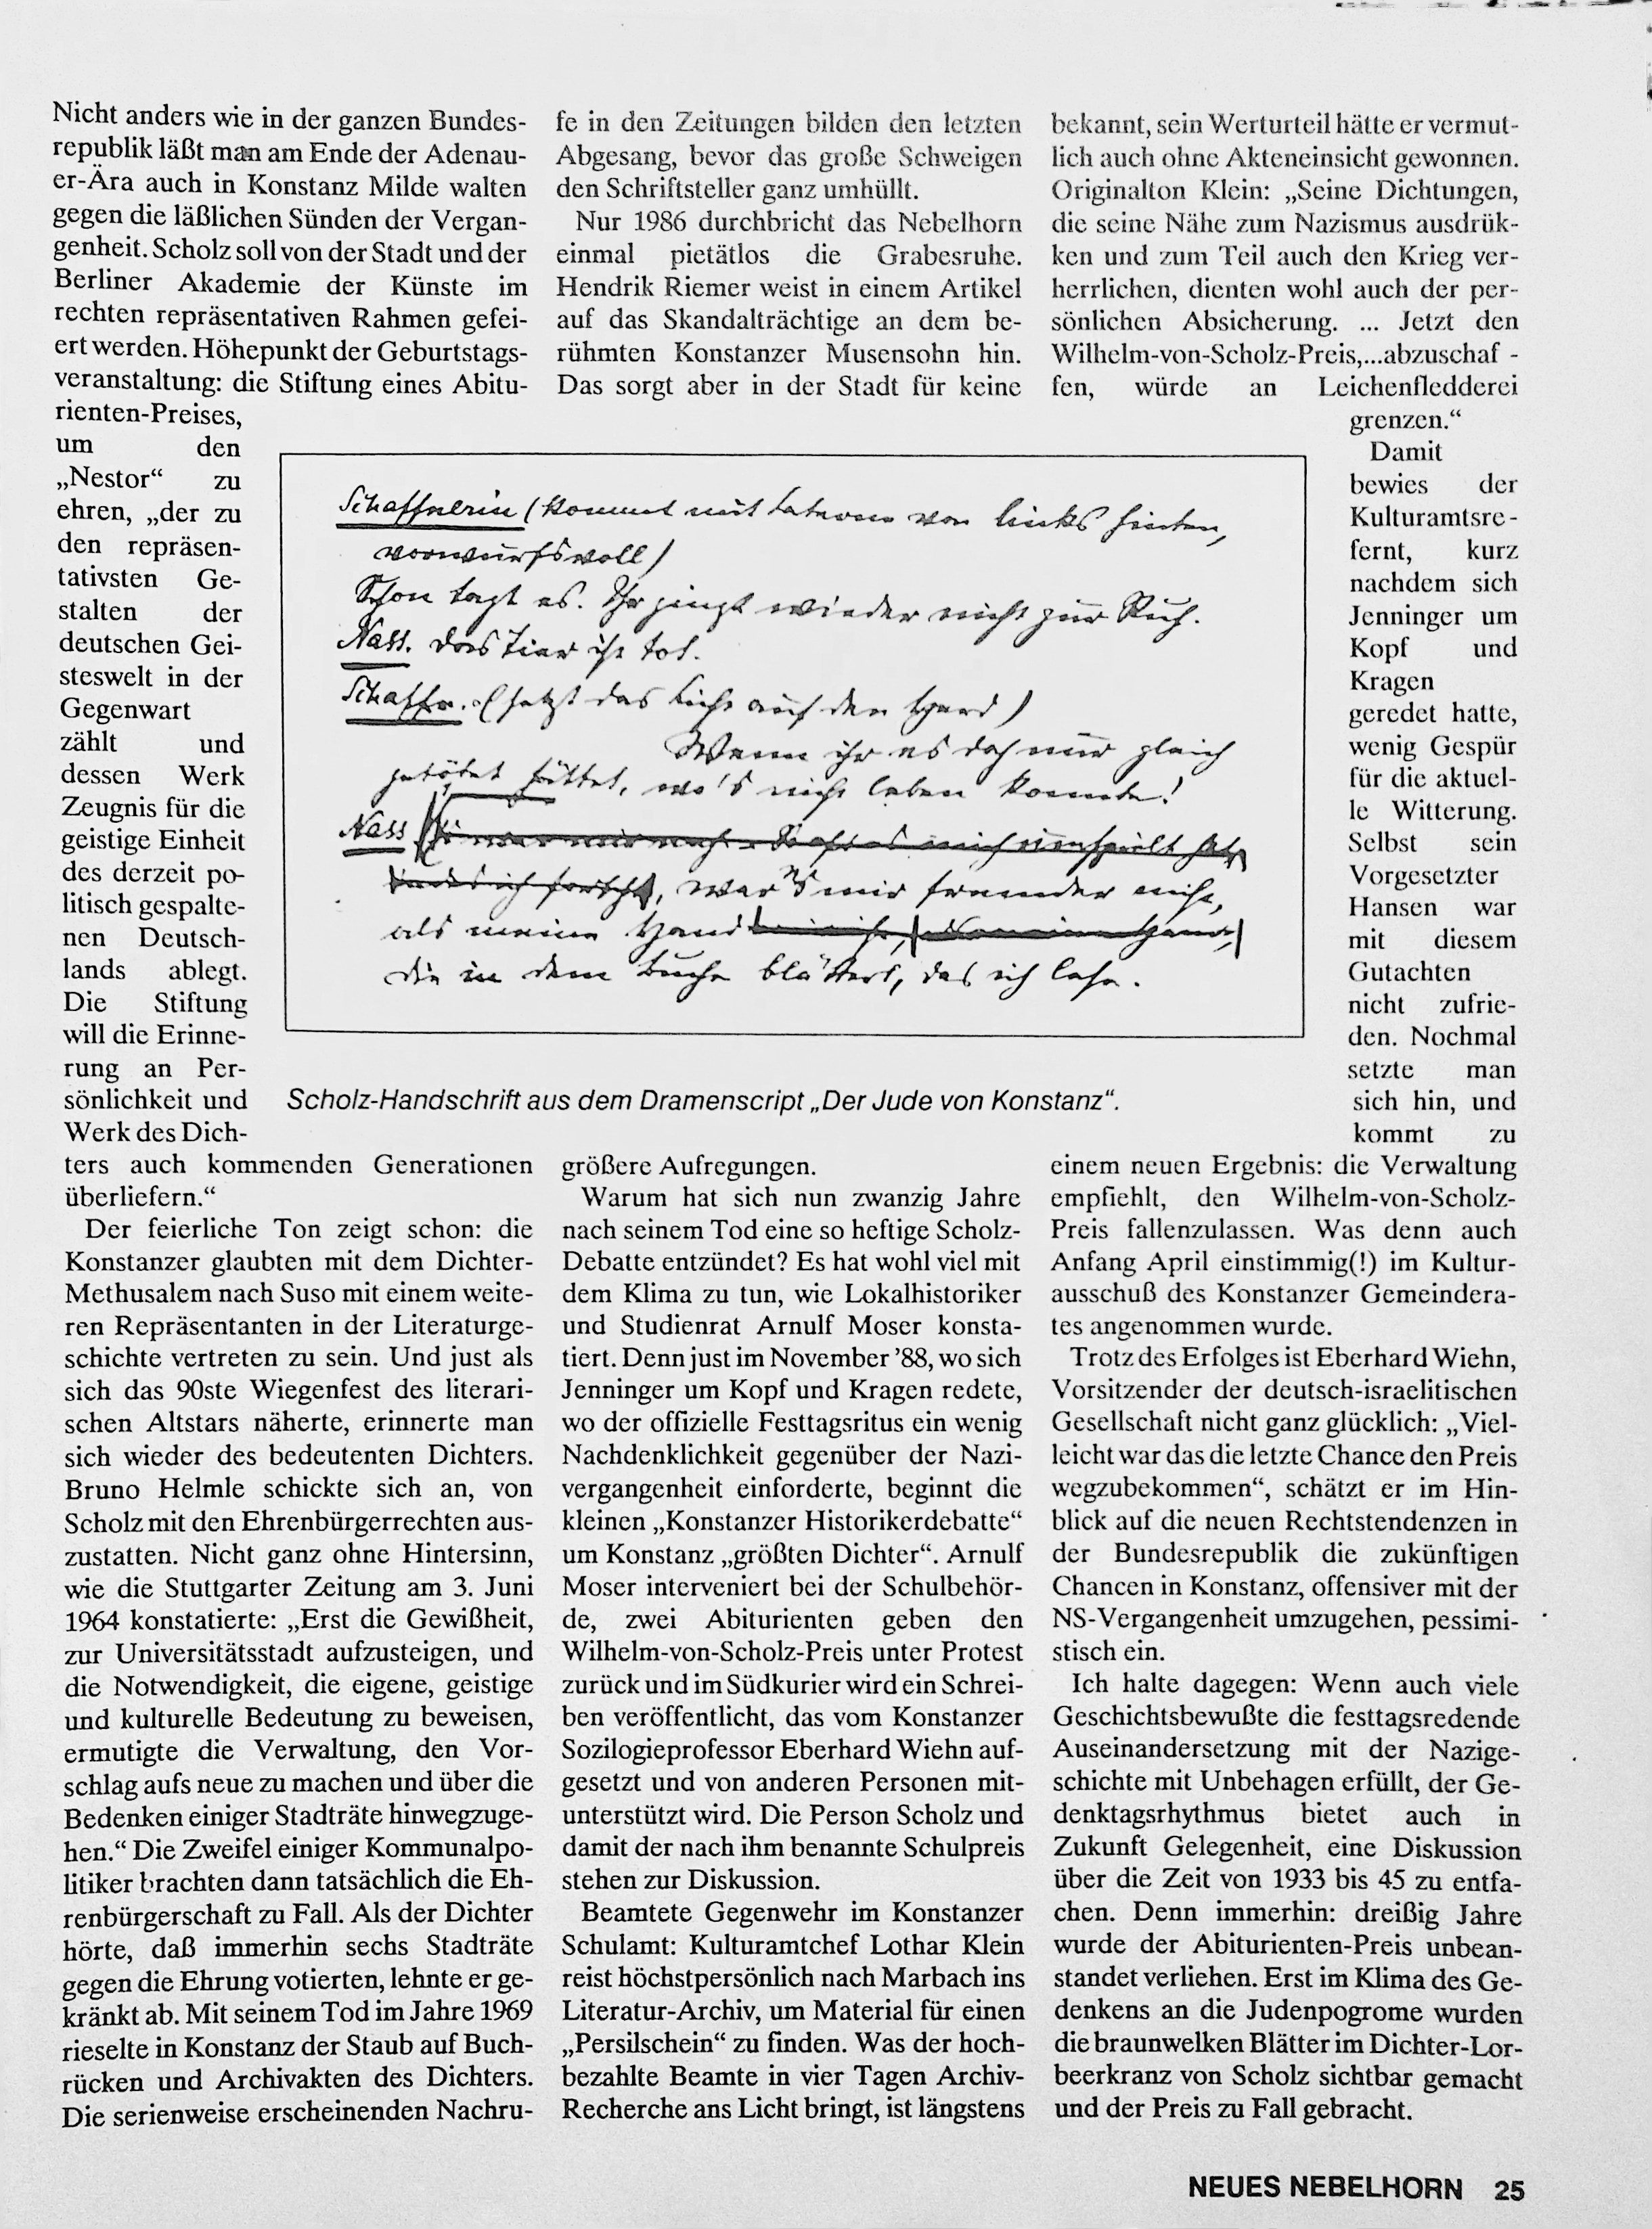 Nicht anders wie in der ganzen Bundes-
republik läßt man am Ende der Adenau-
er-Ära auch in Konstanz Milde walten
gegen die läßlichen Sünden der Vergan-
genheit. Scholz soll von der Stadt und der
Berliner Akademie der Künste im
rechten repräsentativen Rahmen gefei-
ert werden. Höhepunkt der Geburtstags-
veranstaltung: die Stiftung eines Abitu-
rienten-Preises,
um den
„Nestor“ zu
ehren, „der zu
den repräsen-
tativsten Ge-
stalten der
deutschen Gei-
steswelt in der
Gegenwart
zählt und
dessen Werk
Zeugnis für die
geistige Einheit
des derzeit po-
litisch gespalte-
nen Deutsch-
lands ablegt.
Die Stiftung
will die Erinne-
rung an Per-
sönlichkeit und
Werk des Dich-
ters auch kommenden Generationen
überliefern.“
Der feierliche Ton zeigt schon: die
Konstanzer glaubten mit dem Dichter-
Methusalem nach Suso mit einem weite-
ren Repräsentanten in der Literaturge-
schichte vertreten zu sein. Und just als
sich das 90ste Wiegenfest des literari-
schen Altstars näherte, erinnerte man
sich wieder des bedeutenden Dichters.
Bruno Helmle schickte sich an, von
Scholz mit den Ehrenbürgerrechten aus-
zustatten. Nicht ganz ohne Hintersinn,
wie die Stuttgarter Zeitung am 3. Juni
1964 konstatierte: „Erst die Gewißheit,
zur Universitätsstadt aufzusteigen, und
die Notwendigkeit, die eigene, geistige
und kulturelle Bedeutung zu beweisen,
ermutigte die Verwaltung, den Vor-
schlag aufs neue zu machen und über die
Bedenken einiger Stadträte hinwegzuge-
hen.“ Die Zweifel einiger Kommunalpo-
litiker brachten dann tatsächlich die Eh-
renbürgerschaft zu Fall. Als der Dichter
hörte, daß immerhin sechs Stadträte
gegen die Ehrung votierten, lehnte er ge-
kränkt ab. Mit seinem Tod im Jahre 1969
rieselte in Konstanz der Staub auf Buch-
rücken und Archivakten des Dichters.
Die serienweise erscheinenden Nachru-
fe in den Zeitungen bilden den letzten
Abgesang, bevor das große Schweigen
den Schriftsteller ganz umhüllt.
Nur 1986 durchbricht das Nebelhorn
einmal pietätlos die Grabesruhe.
Hendrik Riemer weist in einem Artikel
auf das Skandalträchtige an dem be-
rühmten Konstanzer Musensohn hin.
Das sorgt aber in der Stadt für keine
Schaffnerin (kommt mit Laterne von links hinten,
vorwurfsvoll)
Schon tagt es. Ihr gingt wieder nicht zur Ruh.
Nass. Das Tier ist tot.
Schaffn. (setzt das Licht auf den Herd)
Wenn ihr es doch nur gleich
getötet hättet, wo's nicht leben konnte!
Nass
war's mir fremder nicht,
als meine Hand
die in dem Buche blättert, das ich lese.
Scholz-Handschrift aus dem Dramenscript „Der Jude von Konstanz“.
größere Aufregungen.
Warum hat sich nun zwanzig Jahre
nach seinem Tod eine so heftige Scholz-
Debatte entzündet? Es hat wohl viel mit
dem Klima zu tun, wie Lokalhistoriker
und Studienrat Arnulf Moser konsta-
tiert. Denn just im November ’88, wo sich
Jenninger um Kopf und Kragen redete,
wo der offizielle Festtagsritus ein wenig
Nachdenklichkeit gegenüber der Nazi-
vergangenheit einforderte, beginnt die
kleinen „Konstanzer Historikerdebatte“
um Konstanz „größten Dichter“. Arnulf
Moser interveniert bei der Schulbehör-
de, zwei Abiturienten geben den
Wilhelm-von-Scholz-Preis unter Protest
zurück und im Südkurier wird ein Schrei-
ben veröffentlicht, das vom Konstanzer
Sozilogieprofessor Eberhard Wiehn auf-
gesetzt und von anderen Personen mit-
unterstützt wird. Die Person Scholz und
damit der nach ihm benannte Schulpreis
stehen zur Diskussion.
Beamtete Gegenwehr im Konstanzer
Schulamt: Kulturamtchef Lothar Klein
reist höchstpersönlich nach Marbach ins
Literatur-Archiv, um Material für einen
„Persilschein“ zu finden. Was der hoch-
bezahlte Beamte in vier Tagen Archiv-
Recherche ans Licht bringt, ist längstens
bekannt, sein Werturteil hätte er vermut-
lich auch ohne Akteneinsicht gewonnen.
Originalton Klein: „Seine Dichtungen,
die seine Nähe zum Nazismus ausdrük-
ken und zum Teil auch den Krieg ver-
herrlichen, dienten wohl auch der per-
sönlichen Absicherung. ... Jetzt den
Wilhelm-von-Scholz-Preis,...abzuschaf -
fen, würde an Leichenfledderei
grenzen.“
Damit
bewies der
Kulturamtsre-
fernt, kurz
nachdem sich
Jenninger um
Kopf und
Kragen
geredet hatte,
wenig Gespür
für die aktuel-
le Witterung.
Selbst sein
Vorgesetzter
Hansen war
mit diesem
Gutachten
nicht zufrie-
den. Nochmal
setzte man
sich hin, und
kommt zu
einem neuen Ergebnis: die Verwaltung
empfiehlt, den Wilhelm-von-Scholz-
Preis fallenzulassen. Was denn auch
Anfang April einstimmig(!) im Kultur-
ausschuß des Konstanzer Gemeindera-
tes angenommen wurde.
Trotz des Erfolges ist Eberhard Wiehn,
Vorsitzender der deutsch-israelitischen
Gesellschaft nicht ganz glücklich: „Viel-
leicht war das die letzte Chance den Preis
wegzubekommen“, schätzt er im Hin-
blick auf die neuen Rechtstendenzen in
der Bundesrepublik die zukünftigen
Chancen in Konstanz, offensiver mit der
NS-Vergangenheit umzugehen, pessimi-
stisch ein.
Ich halte dagegen: Wenn auch viele
Geschichtsbewußte die festtagsredende
Auseinandersetzung mit der Nazige-
schichte mit Unbehagen erfüllt, der Ge-
denktagsrhythmus bietet auch in
Zukunft Gelegenheit, eine Diskussion
über die Zeit von 1933 bis 45 zu entfa-
chen. Denn immerhin: dreißig Jahre
wurde der Abiturienten-Preis unbean-
standet verliehen. Erst im Klima des Ge-
denkens an die Judenpogrome wurden
die braunwelken Blätter im Dichter-Lor-
beerkranz von Scholz sichtbar gemacht
und der Preis zu Fall gebracht.
NEUES NEBELHORN 25